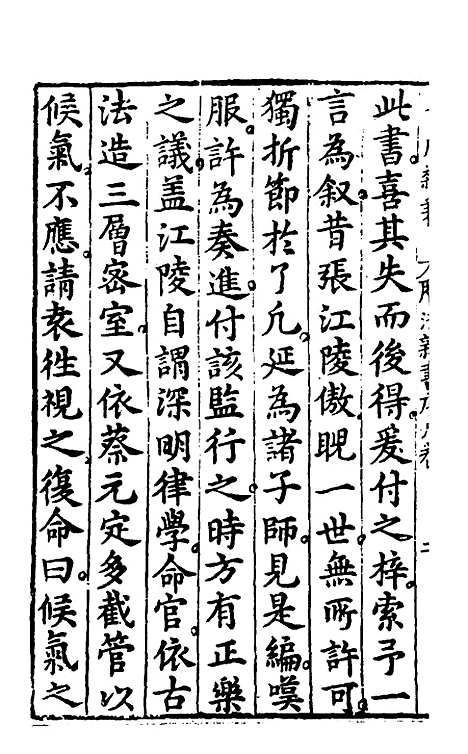 此書喜其失而後得爰付之梓索予一
言為叙昔張江陵傲睨一世無所許可
獨折節於了凢延為諸子師見是編嘆
服許為奏進付該監行之時方有正樂
之議盖江陵自謂深明律學命官依古
法造三層密室又依蔡元定多截管以
候氣不應請袁徃視之復命曰候氣之